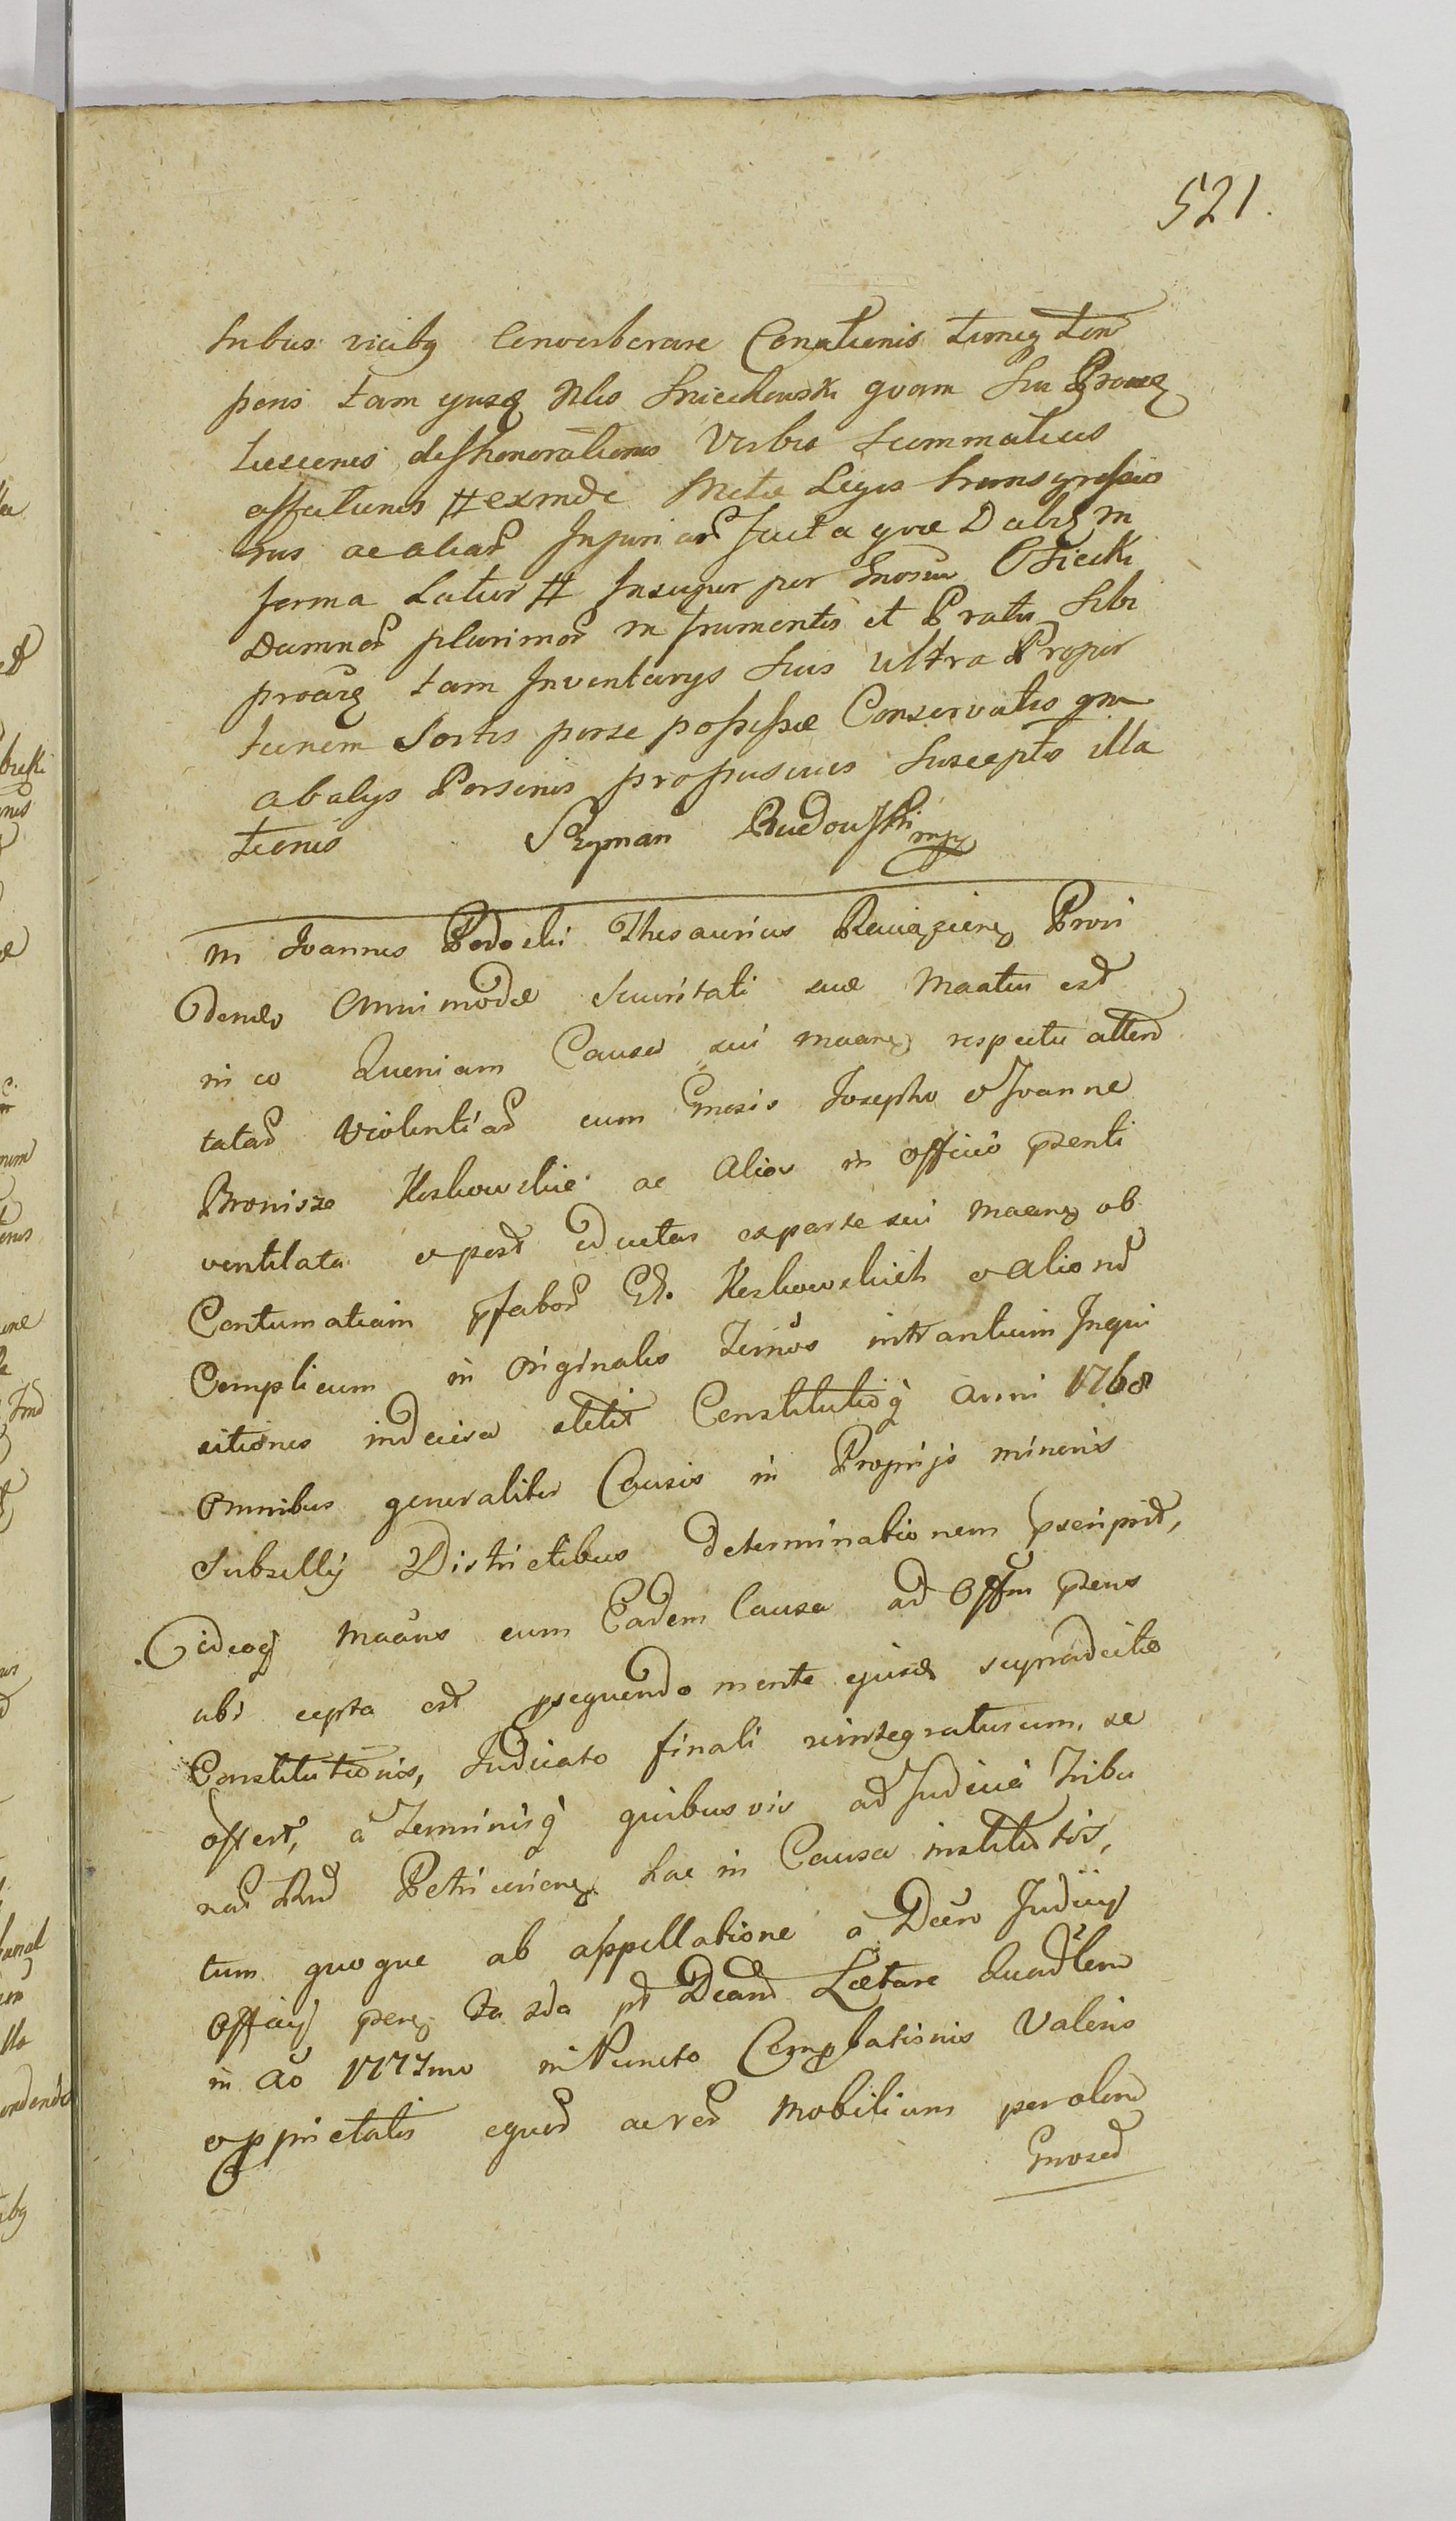 521.
subus vicibq Converberare Conationis tumq tem
poris tam ejusq Nlis Sniechowski quam su Proueq
tucionis deshonorationis Verbis summaticis
affectionis # exinde Metae Legis transgressio
nis ac aliar Injuriar Facta quae Dabit in
forma Latior # Insuper per Gnosum Osiecki
Damnor plurimor in frumentis et Pratis sibi
proarq tam Inventarys suis ultra Propor
tionem Sortis per se possessae Conservatis qm
ab alys Personis propusivis susceptis illa
tionis Szyman Rudowski mp
M Joannes Podoski Thesaurius Raciazienq Provi
dendo Omnimodae Securitati suae Maatus est
in eo Quoniam Causa sui maanq respectu atten
tatar Violentiar cum Gnosis Josepho et Joanne
Bronisze Keskowskie ac Alios in officio psenti
ventilata et post eductas ex parte sui maanq ob
Contumatiam pfator G. Keskowskich et aliord
Complicum in Originales Termos intrantium Inqui
sitiones indecisa stetit Constitutioq anni 1768
Omnibus generaliter Causis in Proprys minoris
Subselly Districtibus determinationem pscripsit,
ideoq Maans cum Eadem Causa ad Offm psens
ubi cepta est psequendo mente ejusd supradictae
Constitutionis, Judicato finali reintegraturum, se
offert, à Terminisq quibusvis ad Judicia Tribu
nal Rnd Petricovienq hac in Causa institutis,
tum quoque ab appellatione à Decro Judicy
Officy psenq fa 2da pt Dcam Laetare Quadlem
in Ao 1771mo in Puncto Comprobationis Valoris
et pprietatis equor ac rer Mobilium per olim
Gnosed